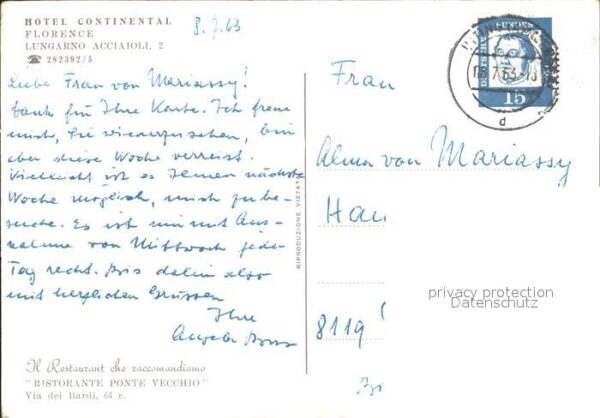 HOTEL CONTINENTAL
FLORENCE
LUNGARNO ACCIAIOLI, 2
☎ 282392/5
8.7.63
Liebe Frau von Mariassy!
Dank für Ihre Karte. Ich freue
mich, Sie wiederzusehen, bin
aber diese Woche verreist.
Vielleicht ist es Ihnen nächste
Woche möglich, mich zu be-
suche. Es ist mir mit Aus-
nahme von Mittwoch jeder
Tag recht. Bis dahin also
mit herzlichen Grüssen
Ihre
Angela
Il Restaurant che raccomandiamo
"RISTORANTE PONTE VECCHIO"
Via dei Bardi, 64 r.
RIPRODUZIONE VIETATA
DEUTSCHE BUNDES
15
7.63
d
Frau
Alma von Mariassy
Hau
8119
privacy protection
Datenschutz